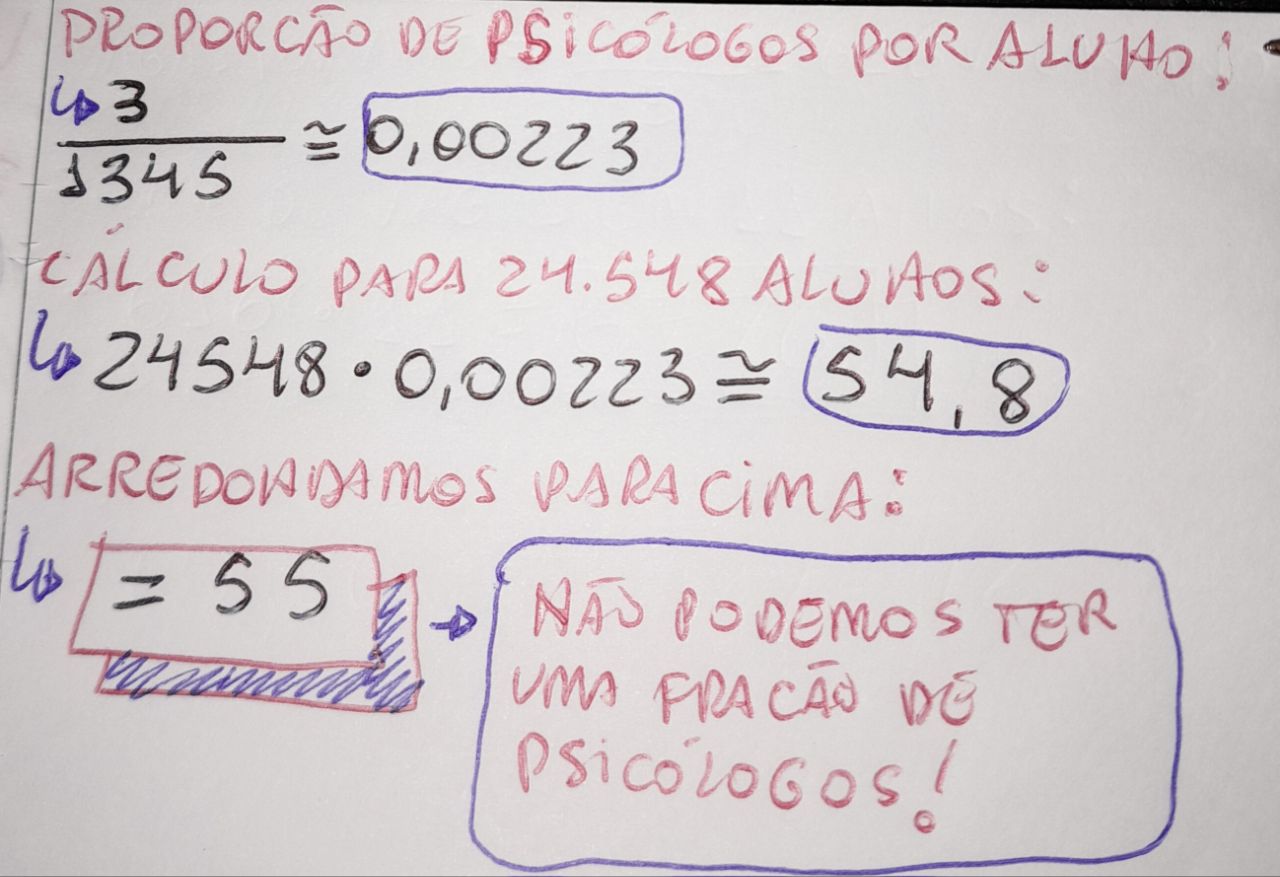 PROPORCÃO DE PSICÓLOGOS POR ALUNO:
↳ 3
1345 ≅ 0,00223
CÁLCULO PARA 24.548 ALUNOS:
↳ 24548 · 0,00223 ≅ 54,8
ARREDONDAMOS PARA CIMA:
↳ = 55 →
NÃO PODEMOS TER
UMA FRACÃO DE
PSICÓLOGOS!